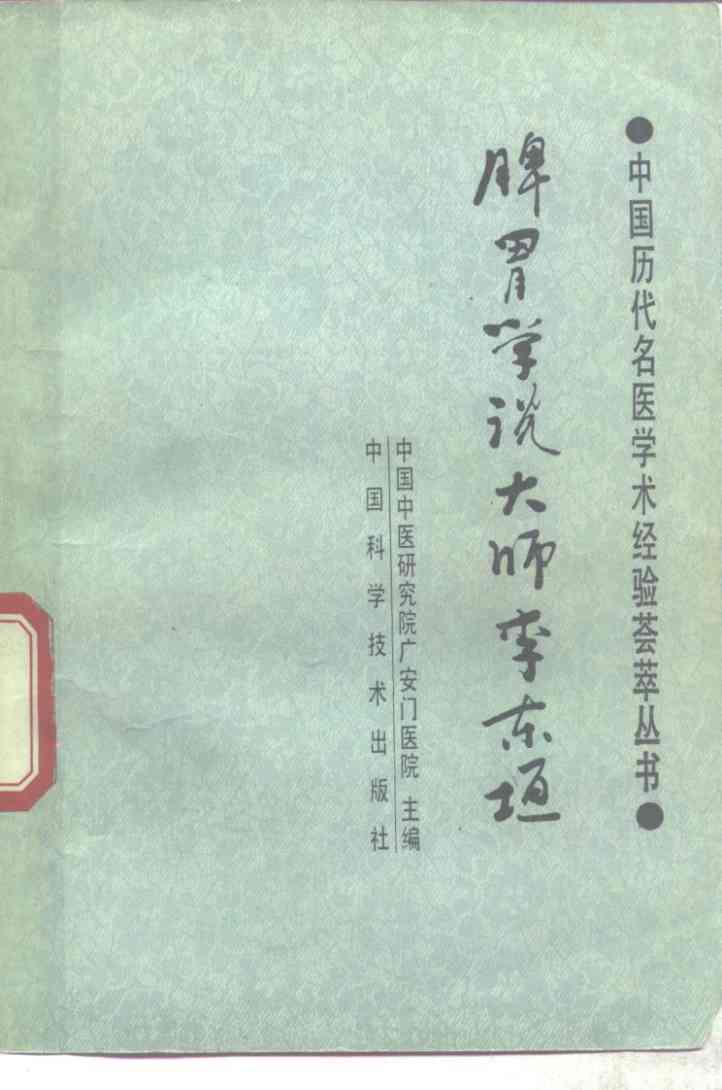 ●中国历代名医学术经验荟萃丛书●
脾胃学说大师李东垣
中国中医研究院广安门医院 主编
中国科学技术出版社